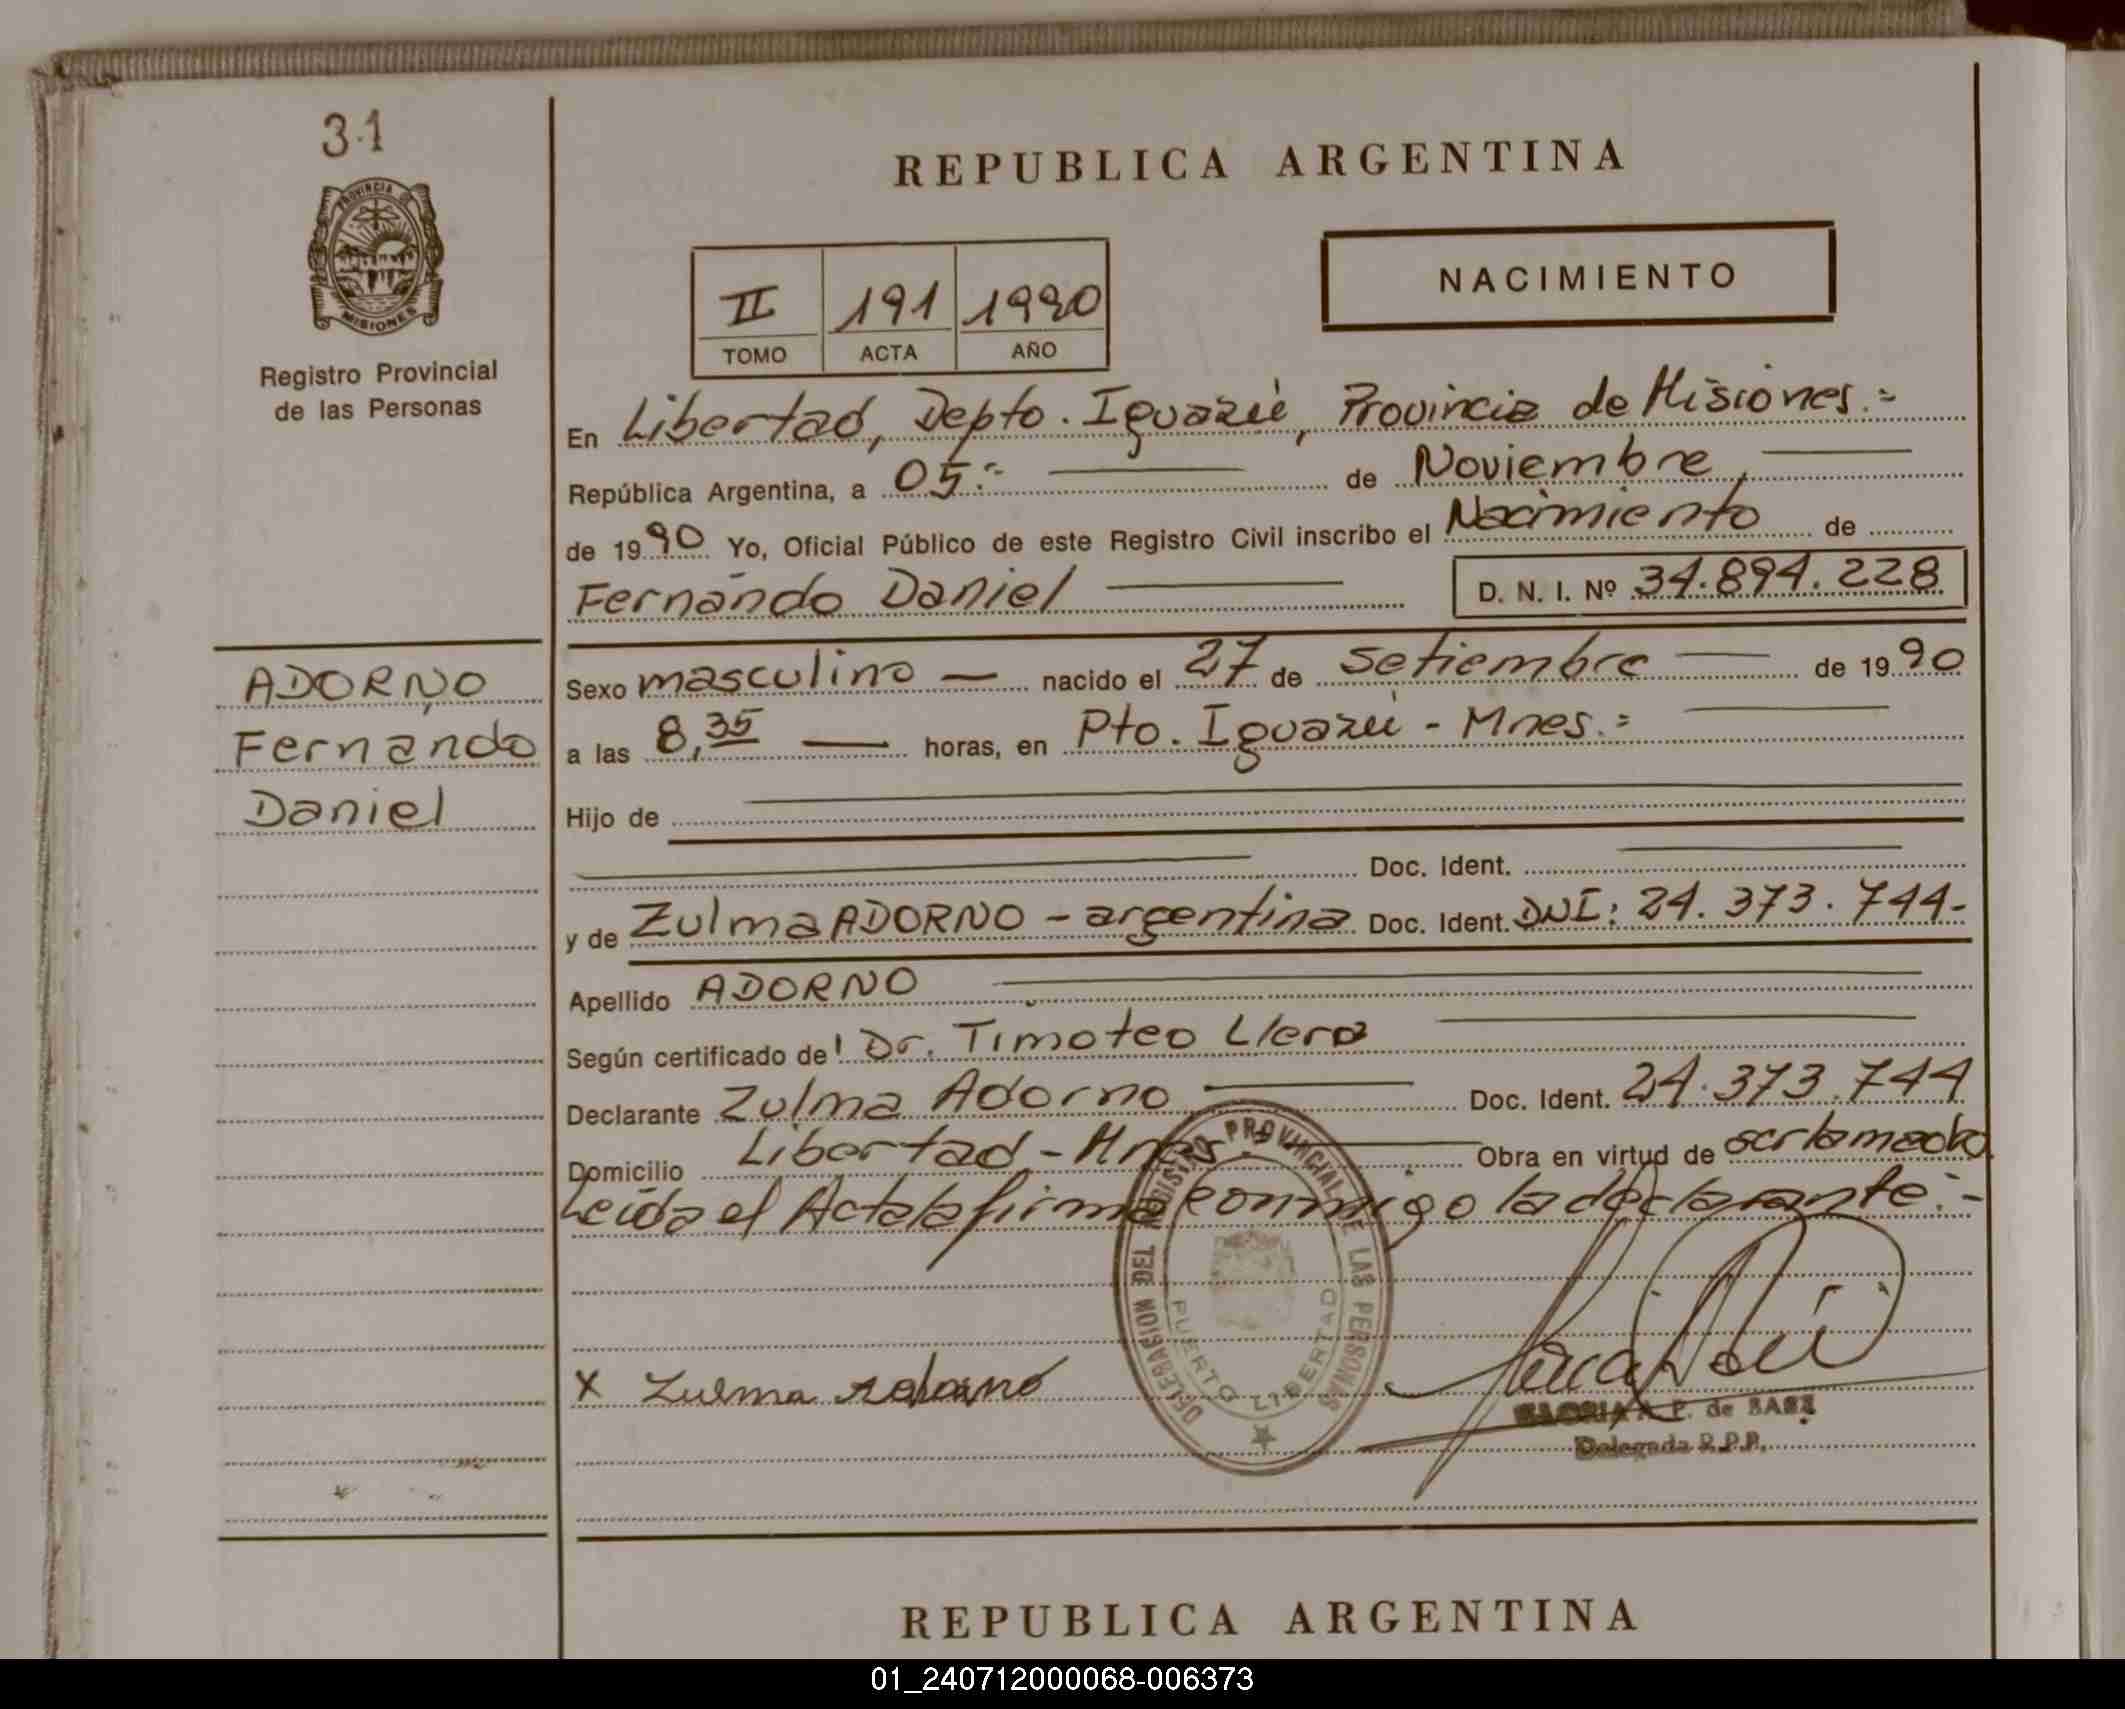 31
PROVINCIA DE
MISIONES
Registro Provincial
de las Personas
REPUBLICA ARGENTINA
II 191 1990
TOMO ACTA AÑO
NACIMIENTO
En Libertad, Depto. Iguazú, Provincia de Misiones.=
República Argentina, a 05.- de Noviembre
de 1990 Yo, Oficial Público de este Registro Civil inscribo el Nacimiento de
Fernando Daniel D. N. I. Nº 34.894.228
ADORNO
Fernando
Daniel
Sexo masculino — nacido el 27 de Setiembre — de 1990
a las 8,35 — horas, en Pto. Iguazú - Mnes.=
Hijo de
Doc. Ident.
y de Zulma ADORNO - argentina Doc. Ident. DNI: 24.373.744-
Apellido ADORNO
Según certificado de Dr. Timoteo Llera
Declarante Zulma Adorno Doc. Ident. 24.373.744
Domicilio Libertad - Mnes.- Obra en virtud de
Leída el Acta la firma conmigo la declarante.-
DELEGACION DEL REGISTRO PROVINCIAL DE LAS PERSONAS
PUERTO LIBERTAD
X Zulma Adorno
A. P. de SAEZ
Delegada R.P.P.
REPUBLICA ARGENTINA
01_240712000068-006373